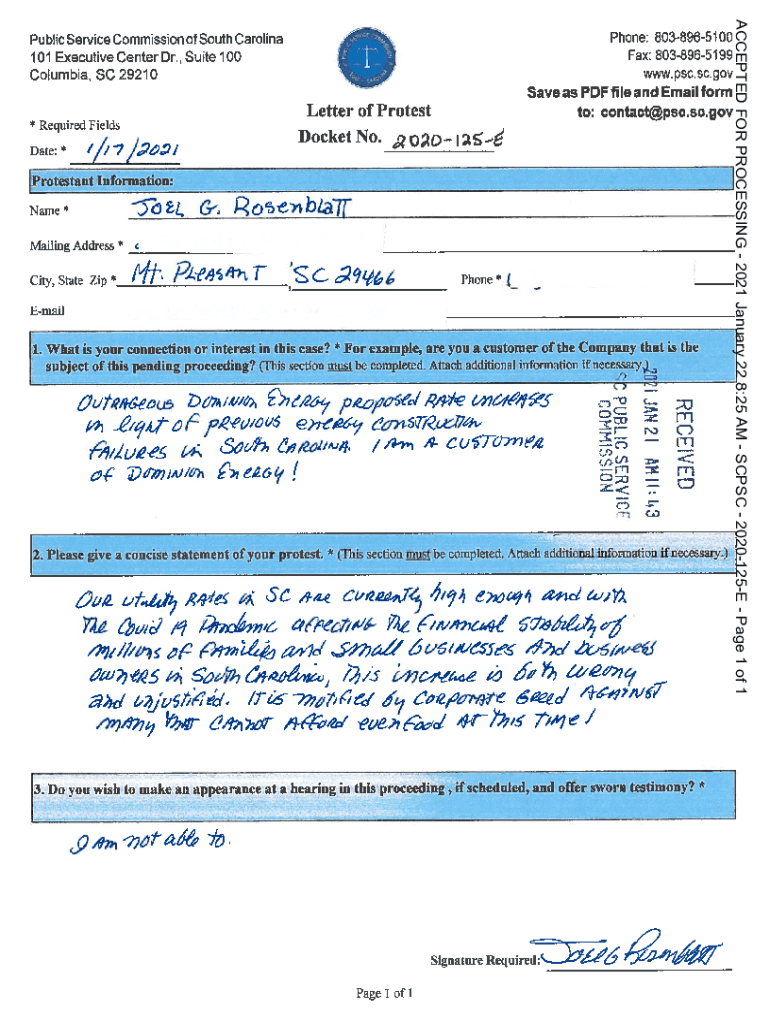 Public Service Commission of South Carolina
101 Executive Center Dr., Suite 100
Columbia, SC 29210
Phone: 803-896-5100
Fax: 803-896-5199
www.psc.sc.gov
Save as PDF file and Email form
to: contact@psc.sc.gov
Letter of Protest
* Required Fields
Docket No. 2020-125-E
Date: * 1/17/2021
Protestant Information:
Name * JOEL G. Rosenblatt
Mailing Address *
City, State Zip * Mt. Pleasant, SC 29466 Phone * (
E-mail
1. What is your connection or interest in this case? * For example, are you a customer of the Company that is the
subject of this pending proceeding? (This section must be completed. Attach additional information if necessary.)
Outrageous Dominion Energy proposed rate increases
in light of previous energy construction
failures in South Carolina. I am a customer
of Dominion Energy!
RECEIVED
2021 JAN 21 AM 11:43
SC PUBLIC SERVICE
COMMISSION
2. Please give a concise statement of your protest. * (This section must be completed. Attach additional information if necessary.)
Our utility rates in SC are currently high enough and with
the Covid 19 Pandemic affecting the financial stability of
millions of families and small businesses and business
owners in South Carolina, this increase is both wrong
and unjustified. It is motified by corporate greed against
many that cannot afford even food at this time!
3. Do you wish to make an appearance at a hearing in this proceeding , if scheduled, and offer sworn testimony? *
I am not able to.
Signature Required: Joel G Rosenblatt
Page 1 of 1
ACCEPTED FOR PROCESSING - 2021 January 22 8:25 AM - SCPSC - 2020-125-E - Page 1 of 1